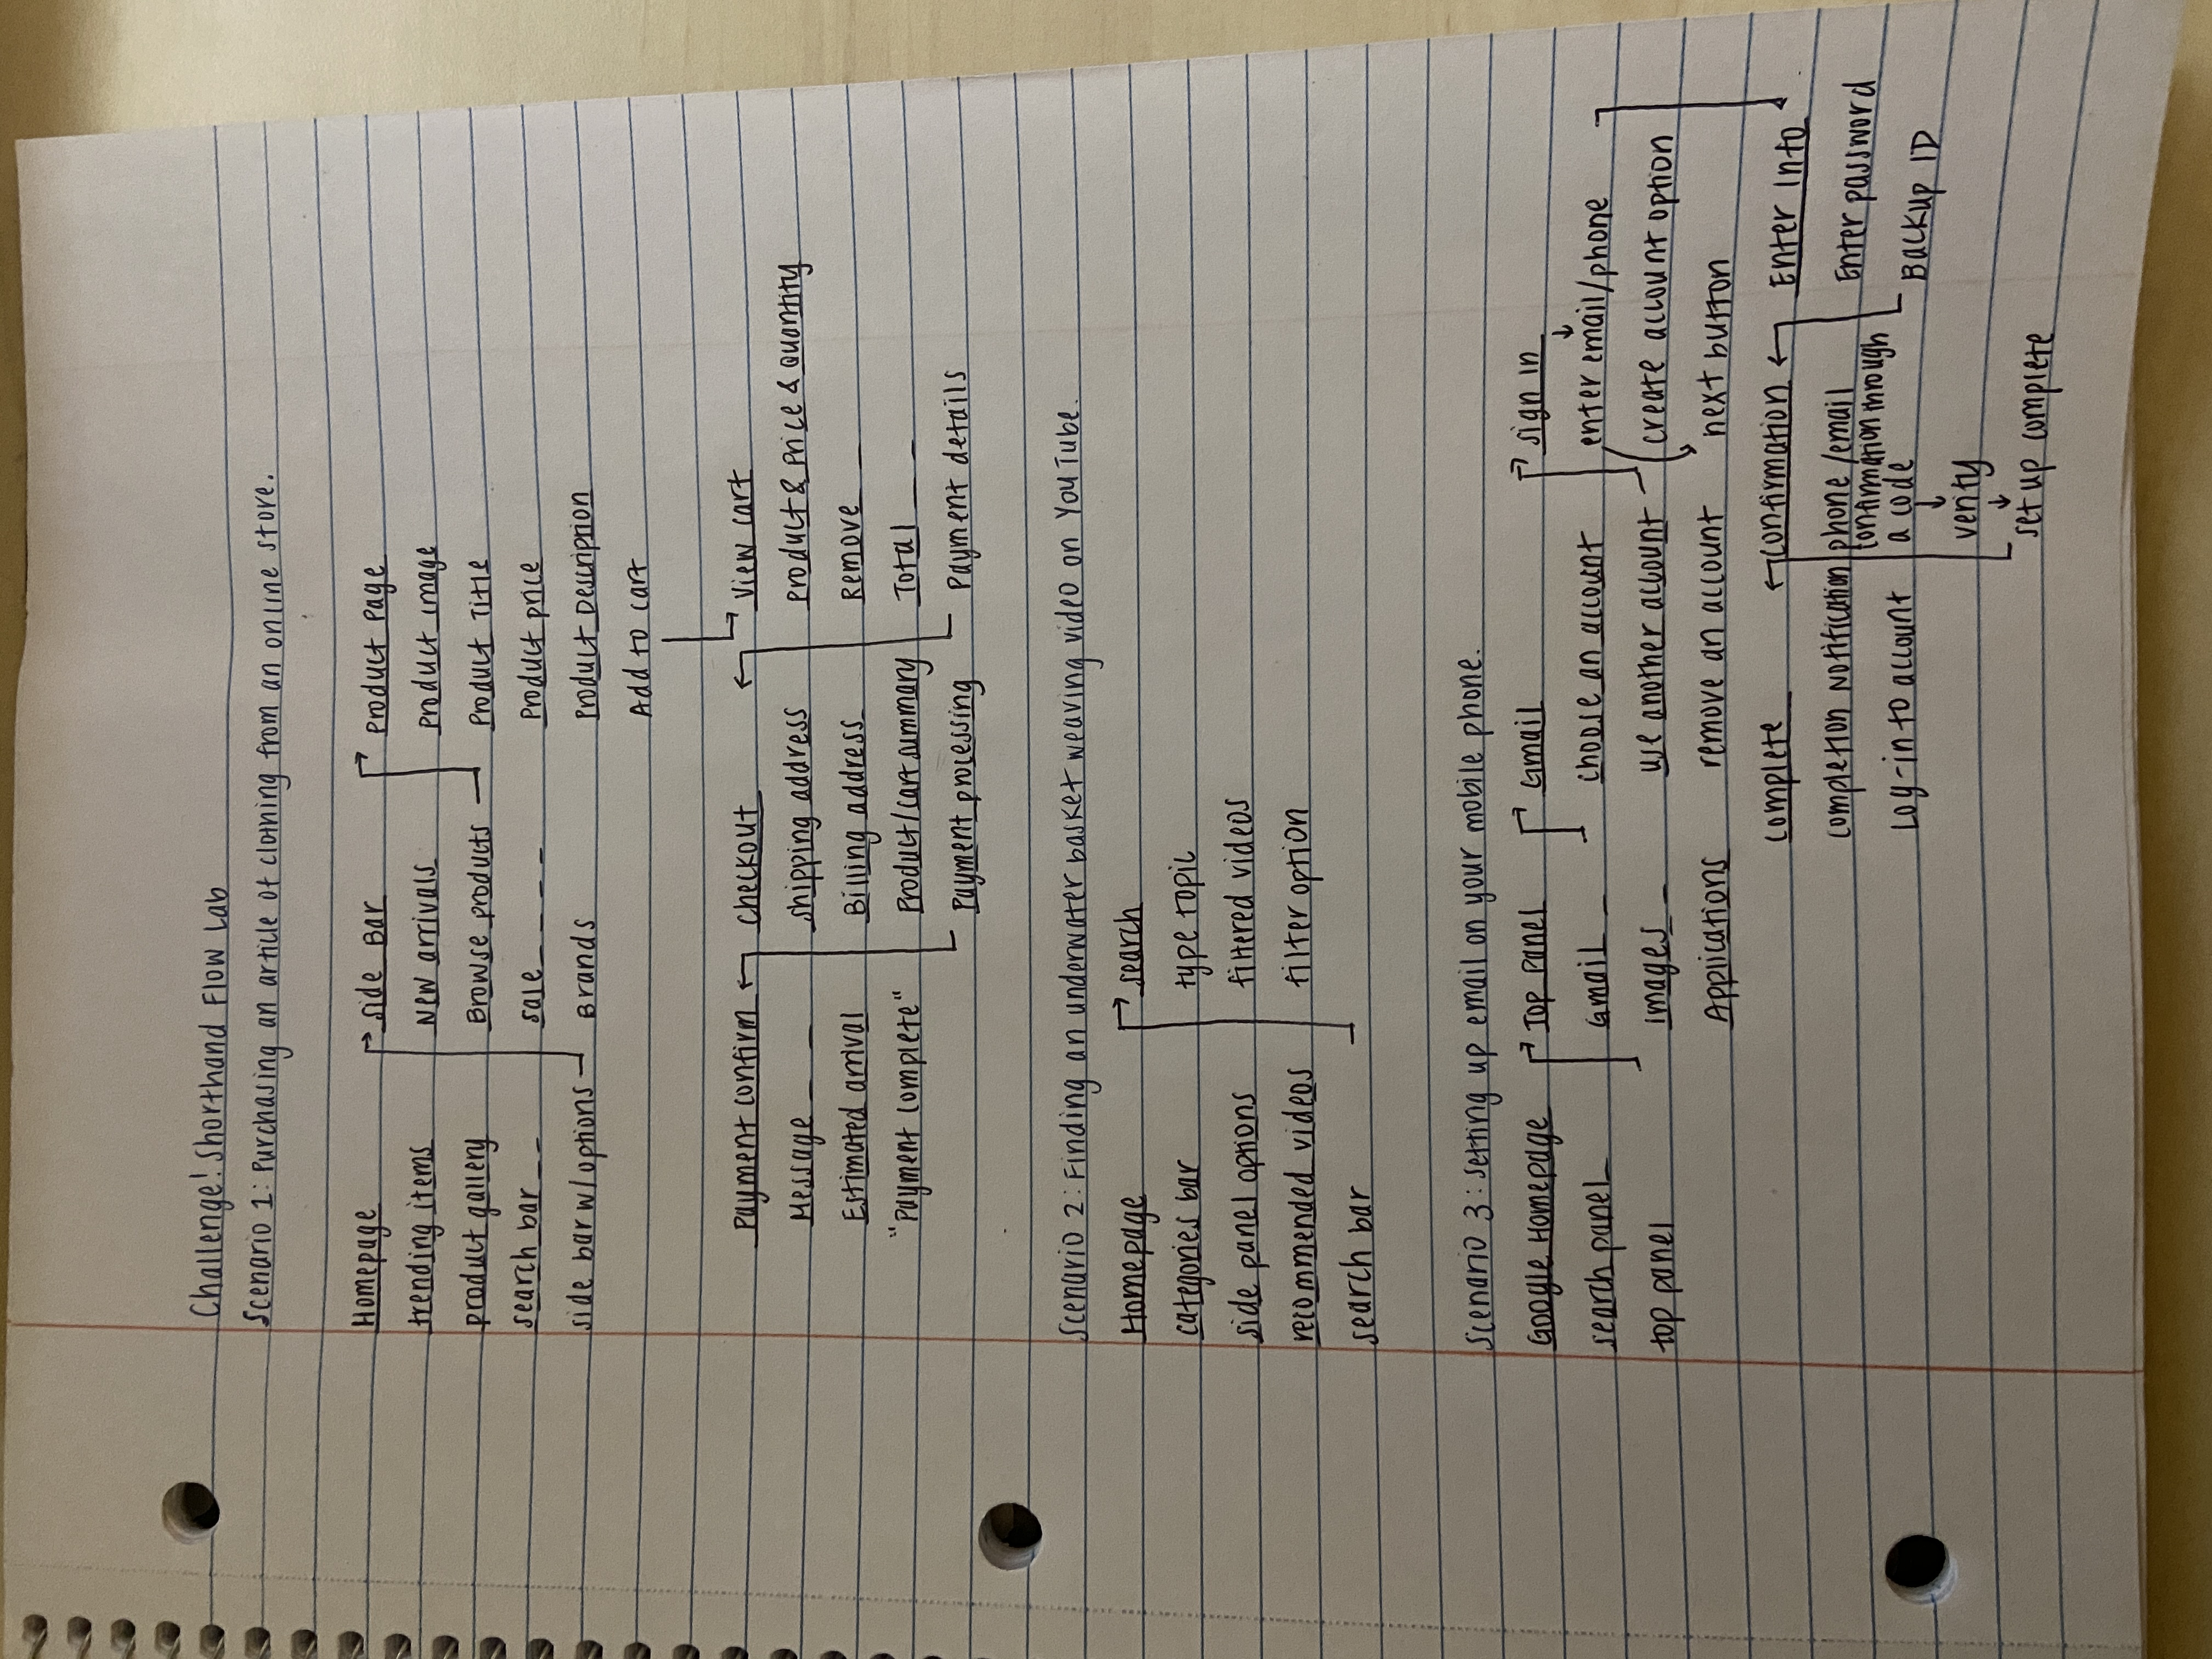 Challenge! Shorthand Flow Lab
Scenario 1: Purchasing an article of clothing from an online store.
Homepage
trending items
product gallery
search bar
side bar w/options
Side Bar
New arrivals
Browse products
Sale
Brands
Product Page
Product image
Product Title
Product price
Product Description
Add to cart
View cart
Product & Price & Quantity
Remove
Total
Payment details
Checkout
Shipping address
Billing address
Product/cart summary
Payment processing
Payment confirm
Message
Estimated arrival
"Payment complete"
Scenario 2: Finding an underwater basket weaving video on YouTube.
Homepage
categories bar
side panel options
recommended videos
search bar
search
type topic
filtered videos
filter option
Scenario 3: Setting up email on your mobile phone.
Google Homepage
search panel
top panel
Top Panel
Gmail
Images
Applications
Gmail
choose an account
use another account
remove an account
Sign in
enter email/phone
create account option
next button
Enter Info
Enter password
Backup ID
Confirmation
phone/email
confirmation through
a code
verify
set up complete
Complete
Completion Notification
Log-in to account